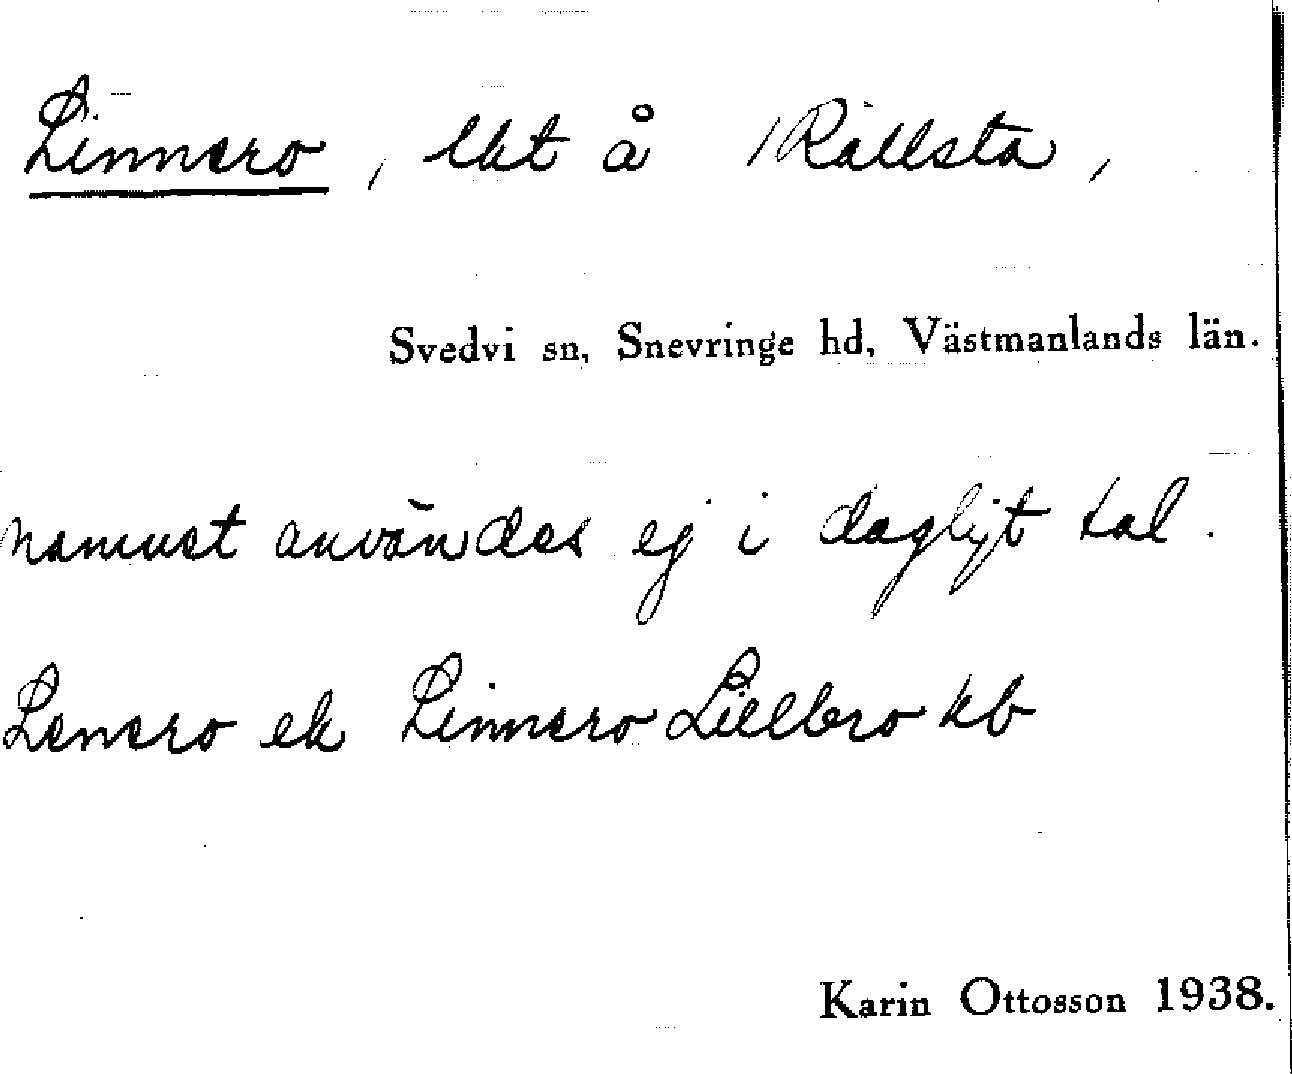 Linnero, lht å Rällsta,
Svedvi sn, Snevringe hd, Västmanlands län.
namnet användes ej i dagligt tal.
Lenero ek Linnero Lillbro kb
Karin Ottosson 1938.